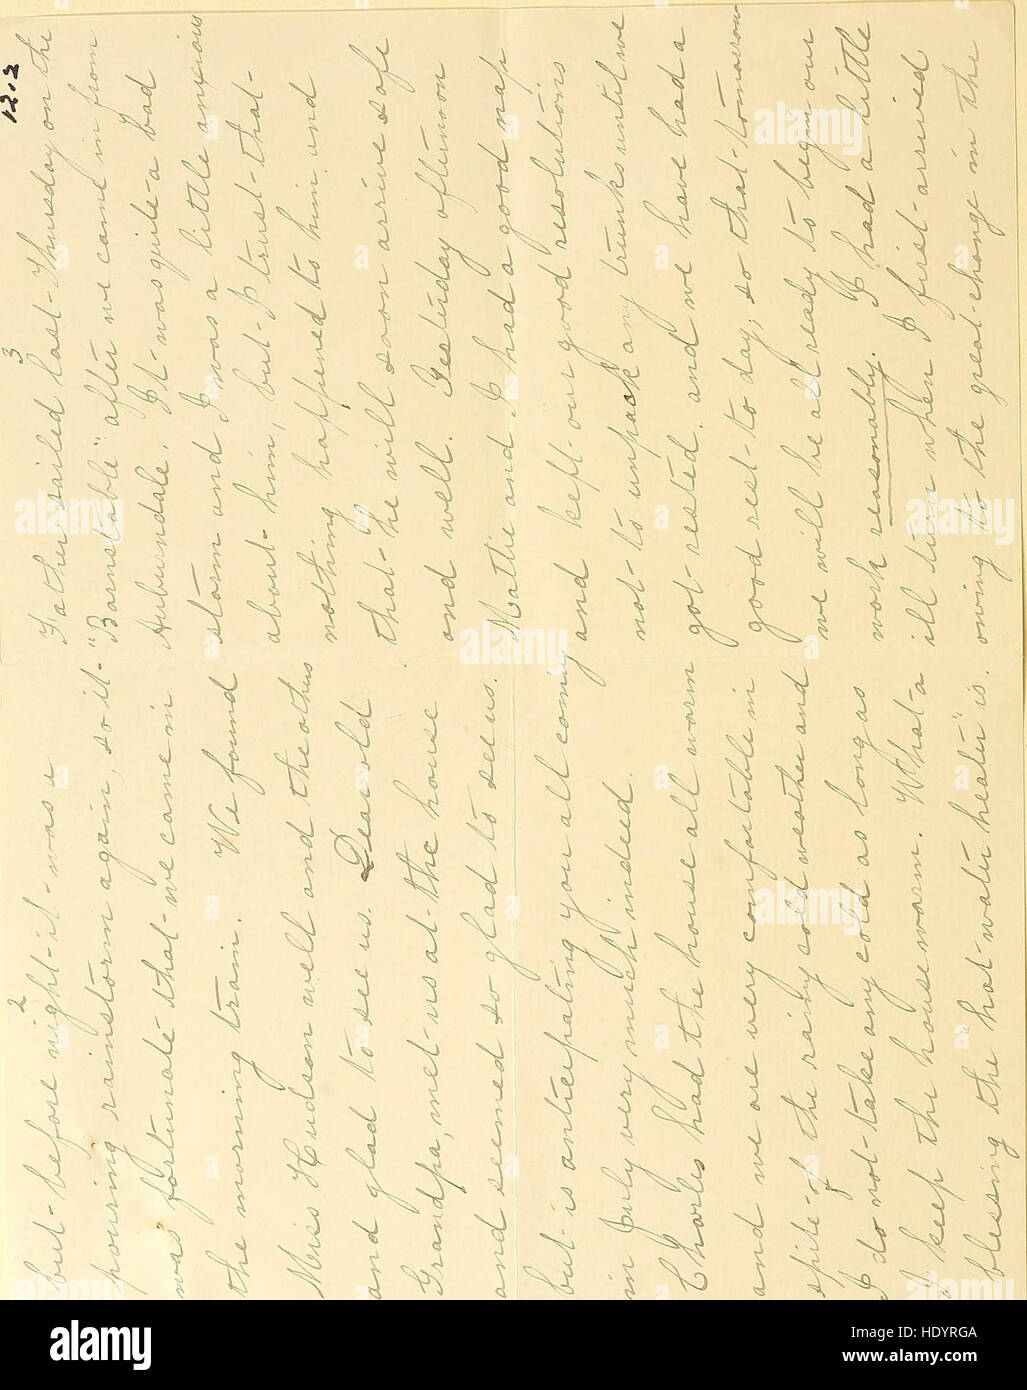 2
but before night it was a
pouring rainstorm again, so it
was fortunate that we came in
the morning train. We found
Miss Hudson well and the others
and glad to see us. Dear old
Grandpa, met us at the house
and seemed so glad to see us.
but is anticipating you all coming
in July very much indeed.
Charles had the house all warm
and we are very comfortable in
spite of the rainy cold weather and
I do not take any cold as long as
I keep the house warm. What a
blessing the "hot-water heater" is.
3
12.2
Father sailed last Thursday on the
"Barnstable" after we came in from
Auburndale. It was quite a bad
storm and I was a little anxious
about him, but I trust that
nothing happened to him and
that he will soon arrive safe
and well. Yesterday afternoon
Mattie and I had a good nap
and kept our good resolutions
not to unpack any trunks until we
got rested, and we have had a
good rest to day, so that tomorrow
we will be all ready to begin our
work reasonably. I had a little
ill turn when I first arrived
owing to the great change in the
alamy
alamy
Image ID: HDYRGA
www.alamy.com